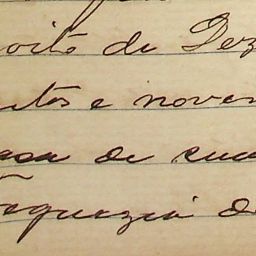 oito de Dez
ntos e noven
asa de sua
Freguezia de